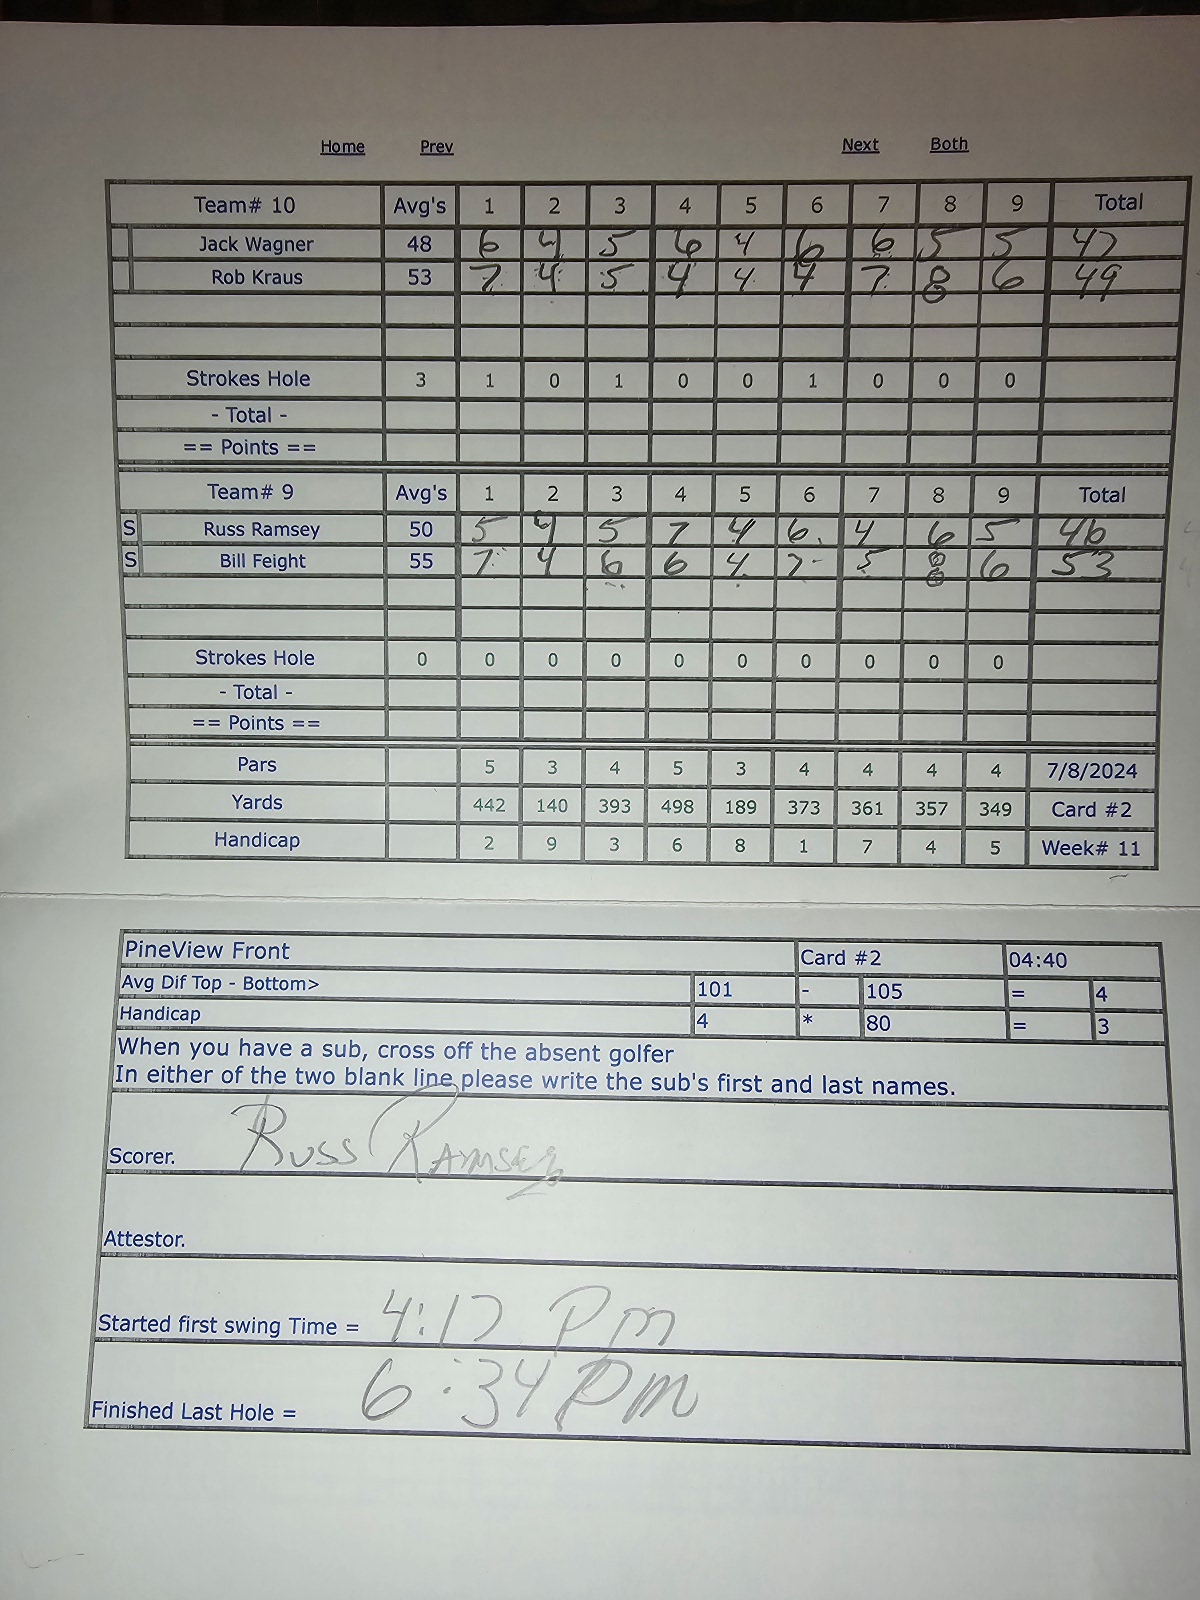 Home Prev Next Both
Team# 10 Avg's 1 2 3 4 5 6 7 8 9 Total
Jack Wagner 48 6 4 5 6 4 6 6 5 5 47
Rob Kraus 53 7 4 5 4 4 4 7 8 6 49
Strokes Hole 3 1 0 1 0 0 1 0 0 0
- Total -
== Points ==
Team# 9 Avg's 1 2 3 4 5 6 7 8 9 Total
S Russ Ramsey 50 5 4 5 7 4 6 4 6 5 46
S Bill Feight 55 7 4 6 6 4 7 5 8 6 53
Strokes Hole 0 0 0 0 0 0 0 0 0 0
- Total -
== Points ==
Pars 5 3 4 5 3 4 4 4 4 7/8/2024
Yards 442 140 393 498 189 373 361 357 349 Card #2
Handicap 2 9 3 6 8 1 7 4 5 Week# 11
PineView Front Card #2 04:40
Avg Dif Top - Bottom> 101 - 105 = 4
Handicap 4 * 80 = 3
When you have a sub, cross off the absent golfer
In either of the two blank line please write the sub's first and last names.
Scorer. Russ Ramsey
Attestor.
Started first swing Time = 4:17 Pm
Finished Last Hole = 6:34 Pm